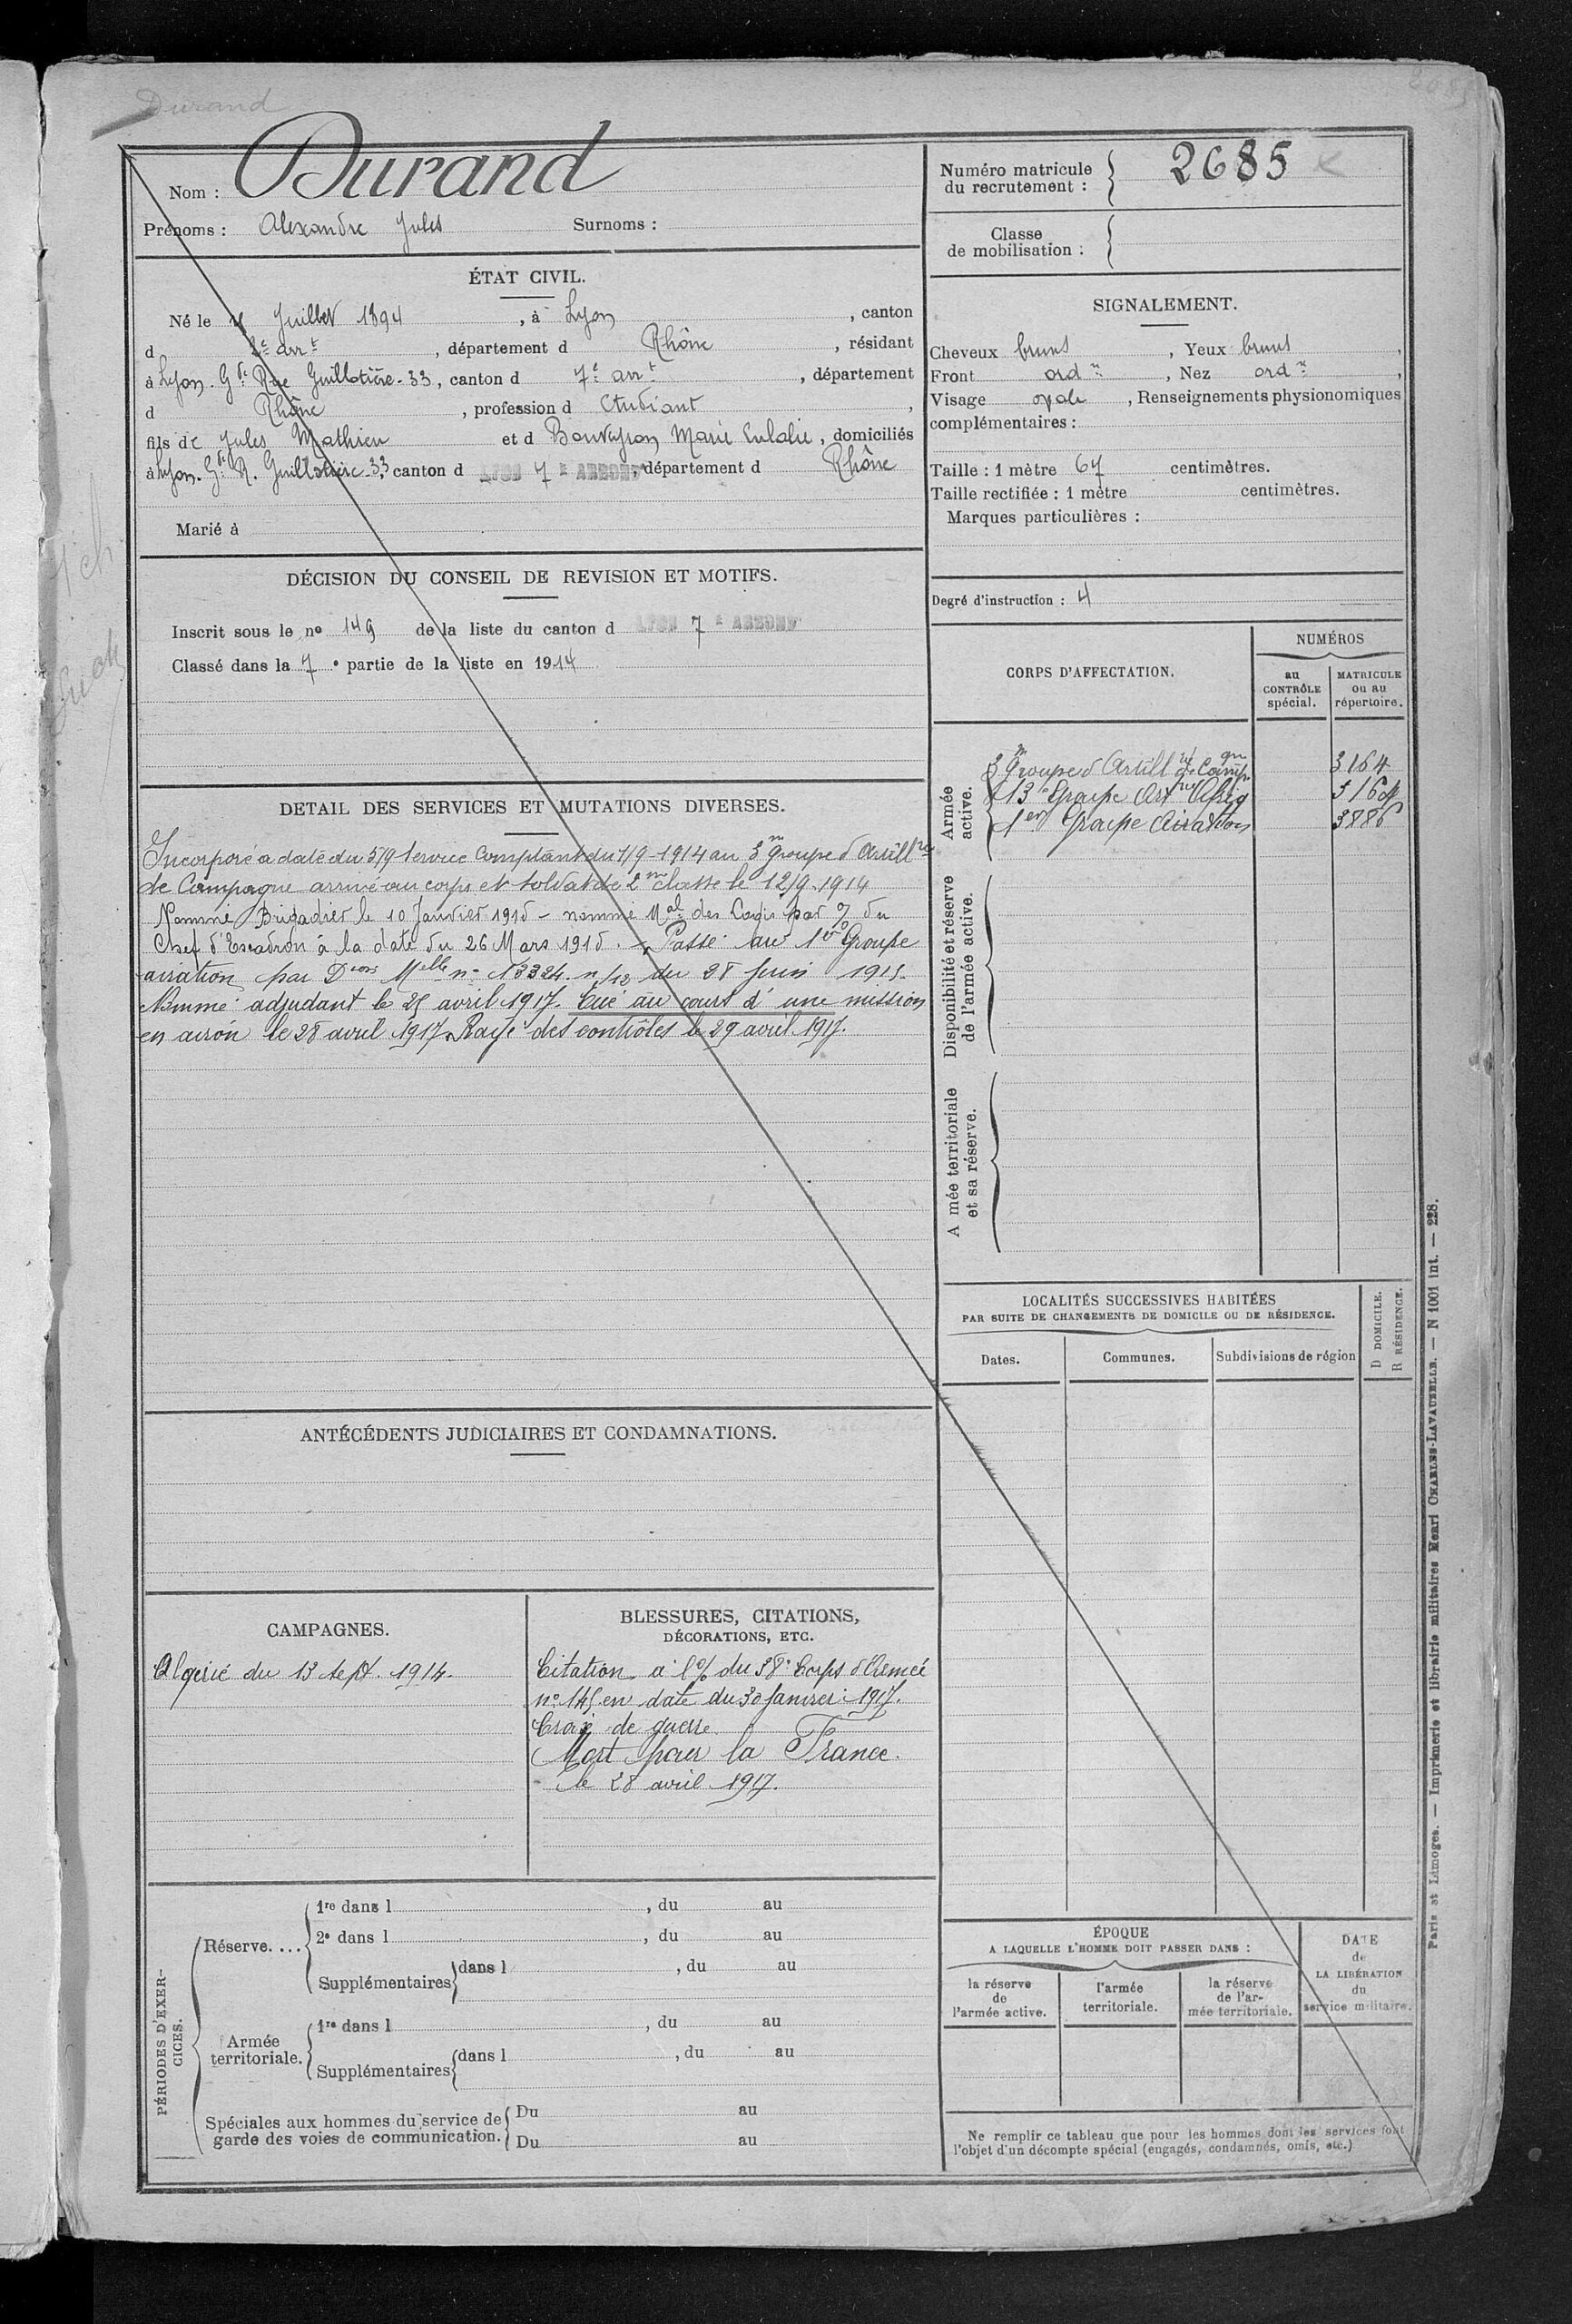 Durand
Nom : Durand
Prénoms : Alexandre Jules Surnoms :
ÉTAT CIVIL.
Né le Juillet 1894, à Lyon, canton
d 2e arrt, département d Rhône, résidant
à Lyon. Gde Rue Guillotière - 33, canton d 7e arrt, département
d Rhône, profession d Etudiant,
fils de Jules Mathieu et d Bouvayron Marie Eulalie, domiciliés
à Lyon. Gde R. Guillotière - 33, canton d LYON 7e ARROND, département d Rhône
Marié à
DÉCISION DU CONSEIL DE REVISION ET MOTIFS.
Inscrit sous le no 149 de la liste du canton d LYON 7e ARROND
Classé dans la 7e partie de la liste en 1914
DETAIL DES SERVICES ET MUTATIONS DIVERSES.
Incorporé a daté du 5/9 Service Comptant du 1/9-1914 au 3me groupe d'Artillrie
de Campagne arrivé au corps et soldat de 2me classe le 12/9-1914
Nommé Brigadier le 10 Janvier 1915 - nommé Mal des Logis par % du
Chef d'Escadron à la date du 26 Mars 1915. - Passé au 1er Groupe
aviation par Dion Mlle no 13324. n/12 du 28 juin 1915.
Nommé adjudant le 25 avril 1917. Tué au cours d'une mission
en avion le 28 avril 1917. Rayé des contrôles le 29 avril 1917.
ANTÉCÉDENTS JUDICIAIRES ET CONDAMNATIONS.
CAMPAGNES.
Algérie du 13 sept. 1914.
BLESSURES, CITATIONS,
DÉCORATIONS, ETC.
Citation à l'% du 38e Corps d'Armée
no 145 en date du 30 Janvier 1917.
Croix de guerre
Mort pour la France.
le 28 avril 1917.
PÉRIODES D'EXERCICES.
Réserve....
1re dans l , du au
2e dans l , du au
Supplémentaires dans l , du au
Armée territoriale.
1re dans l , du au
Supplémentaires dans l , du au
Spéciales aux hommes du service de
garde des voies de communication.
Du au
Du au
Numéro matricule
du recrutement : 2685
Classe
de mobilisation :
SIGNALEMENT.
Cheveux bruns, Yeux bruns,
Front ordre, Nez ordre,
Visage ovale, Renseignements physionomiques
complémentaires :
Taille : 1 mètre 67 centimètres.
Taille rectifiée : 1 mètre centimètres.
Marques particulières :
Degré d'instruction : 4
CORPS D'AFFECTATION.
NUMÉROS
au CONTRÔLE spécial.
MATRICULE ou au répertoire.
Armée active.
3me Groupe d'Artillrie de Campgne 3164
13e Groupe Artrie Afriq 3164
1er Groupe Aviation 3886
Disponibilité et réserve
de l'armée active.
A mée territoriale
et sa réserve.
LOCALITÉS SUCCESSIVES HABITÉES
PAR SUITE DE CHANGEMENTS DE DOMICILE OU DE RÉSIDENCE.
D DOMICILE.
R RÉSIDENCE.
Dates. Communes. Subdivisions de région
ÉPOQUE
A LAQUELLE L'HOMME DOIT PASSER DANS :
la réserve de l'armée active.
l'armée territoriale.
la réserve de l'armée territoriale.
DATE de LA LIBÉRATION du service militaire.
Ne remplir ce tableau que pour les hommes dont les services font
l'objet d'un décompte spécial (engagés, condamnés, omis, etc.)
Paris et Limoges. — Imprimerie et librairie militaires Henri CHARLES-LAVAUZELLE. — N 1001 int. — 228.